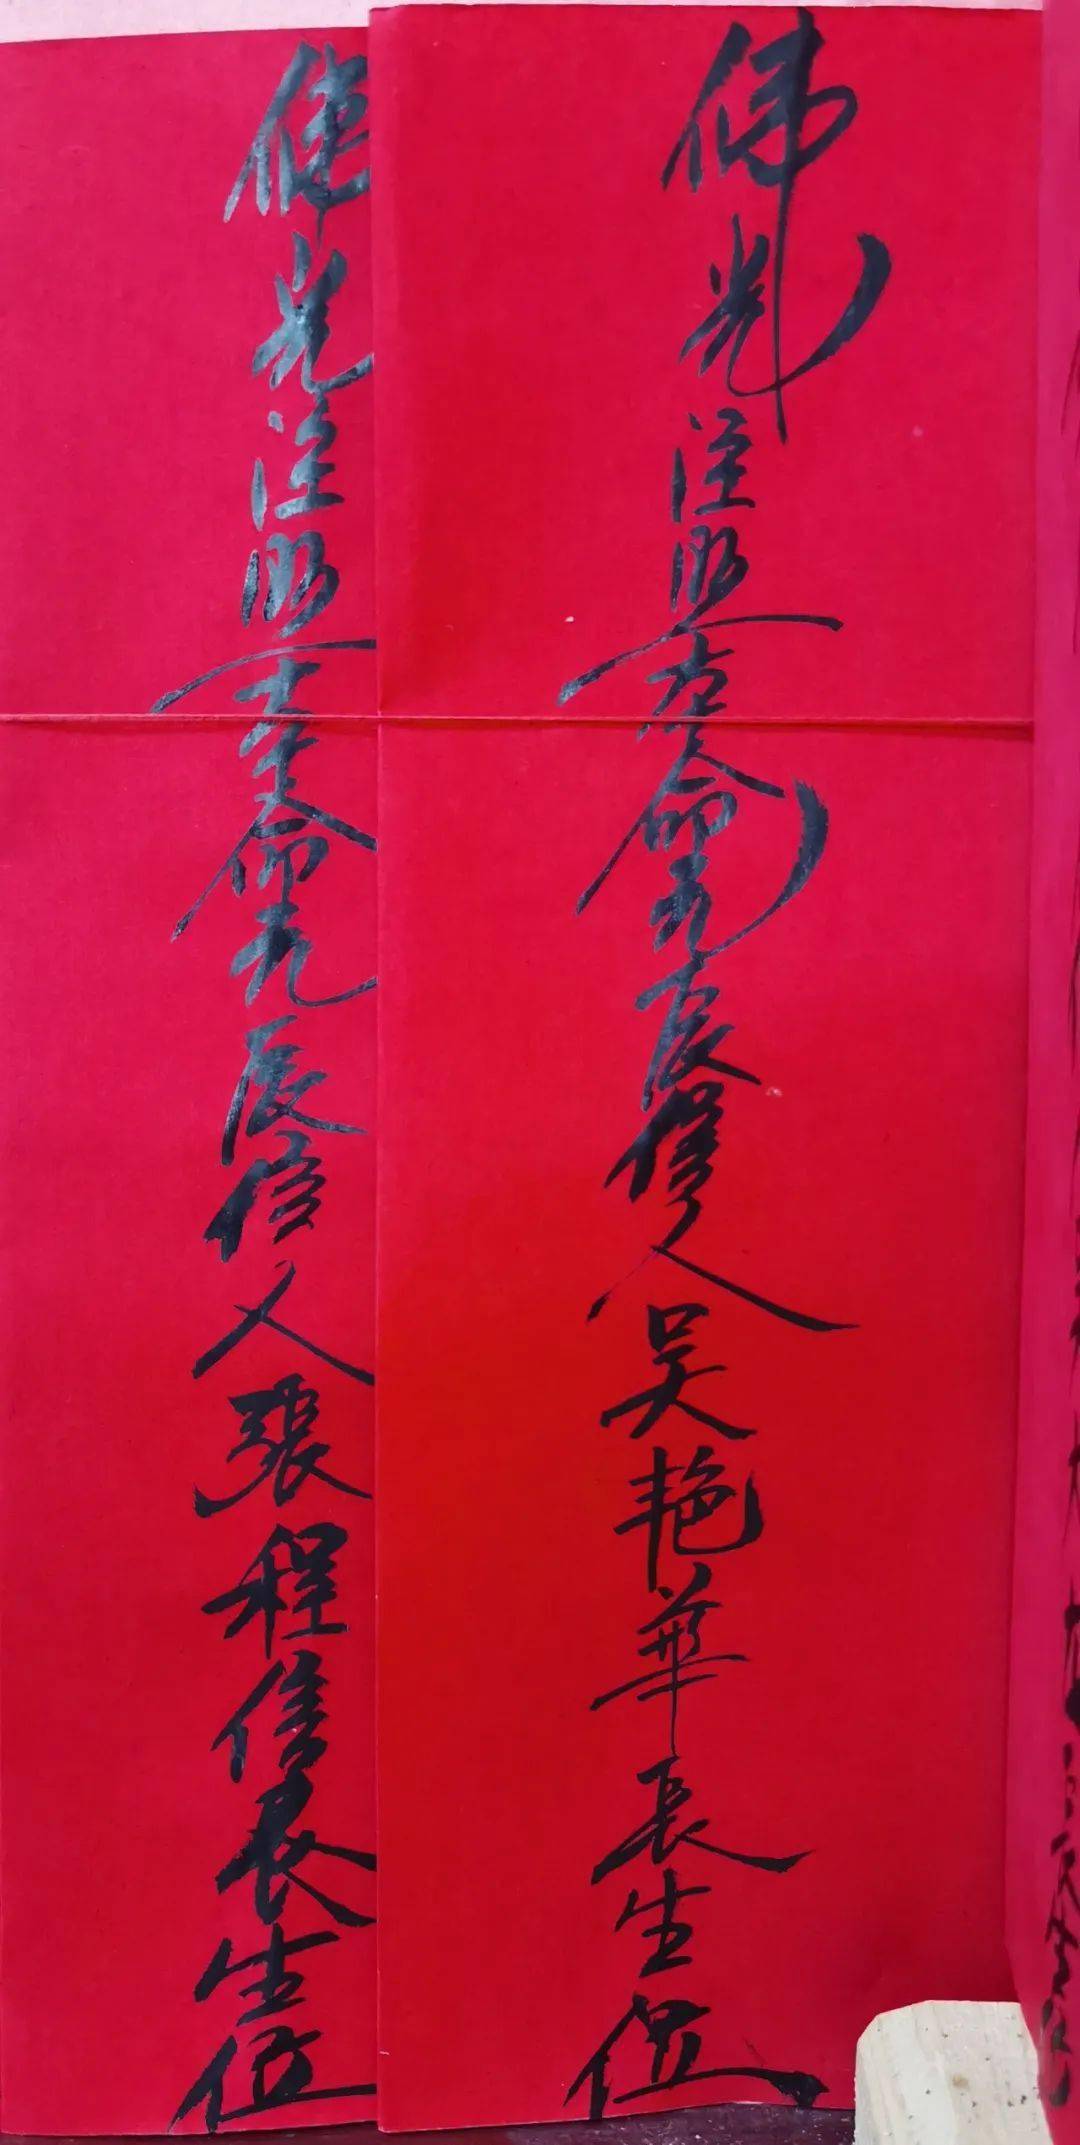 佛光注照本命元辰信人吴艳华長生位
佛光注照本命元辰信人張程信長生位